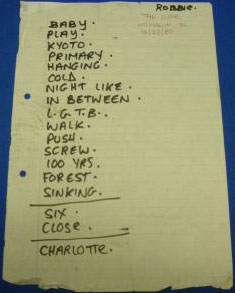 ROBBIE.
THE CURE
BABY.
PLAY.
KYOTO.
PRIMARY.
HANGING.
COLD.
NIGHT LIKE.
IN BETWEEN.
L.G.T.B.
WALK.
PUSH.
SCREW.
100 YRS.
FOREST.
SINKING.
SIX.
CLOSE.
CHARLOTTE.